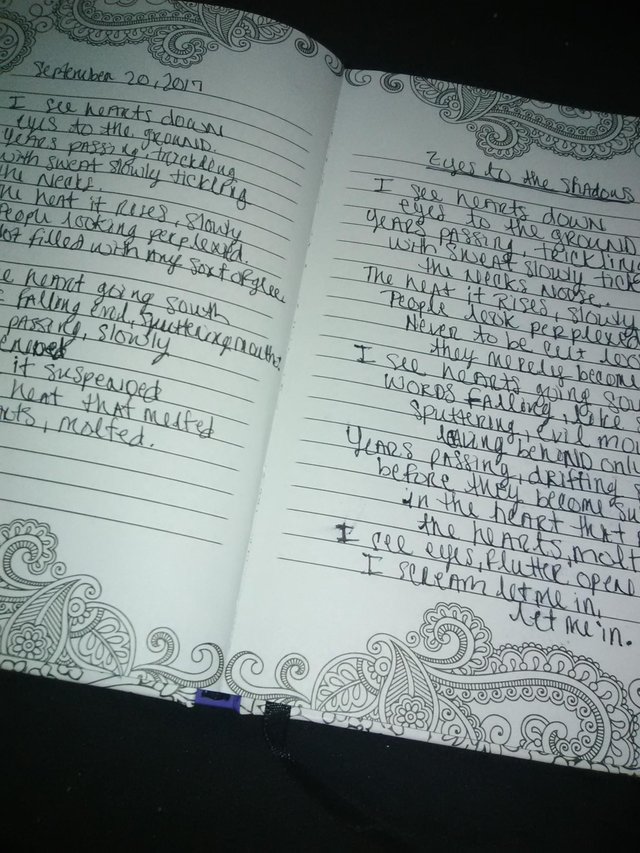 September 20, 2017
I see hearts down
eyes to the ground.
years passing, trickling
with sweat slowly tickling
the necks.
the heat it rises slowly
people looking perplexed.
not filled with my sort of glee.
heart going south
falling end, sputtering mouth.
passing, slowly
it suspended
heat that melted
molted.
Eyes to the shadows
I see hearts down
eyes to the ground
years passing, trickling
with sweat slowly
the necks noose..
The heat it rises, slowly
People look perplexed
Never to be
they merely become
I see hearts going
words falling, like
sputtering, evil
leaving behind
Years passing, drifting
before they become
in the heart that
the hearts,
I see eyes, flutter open
I scream let me in,
let me in.